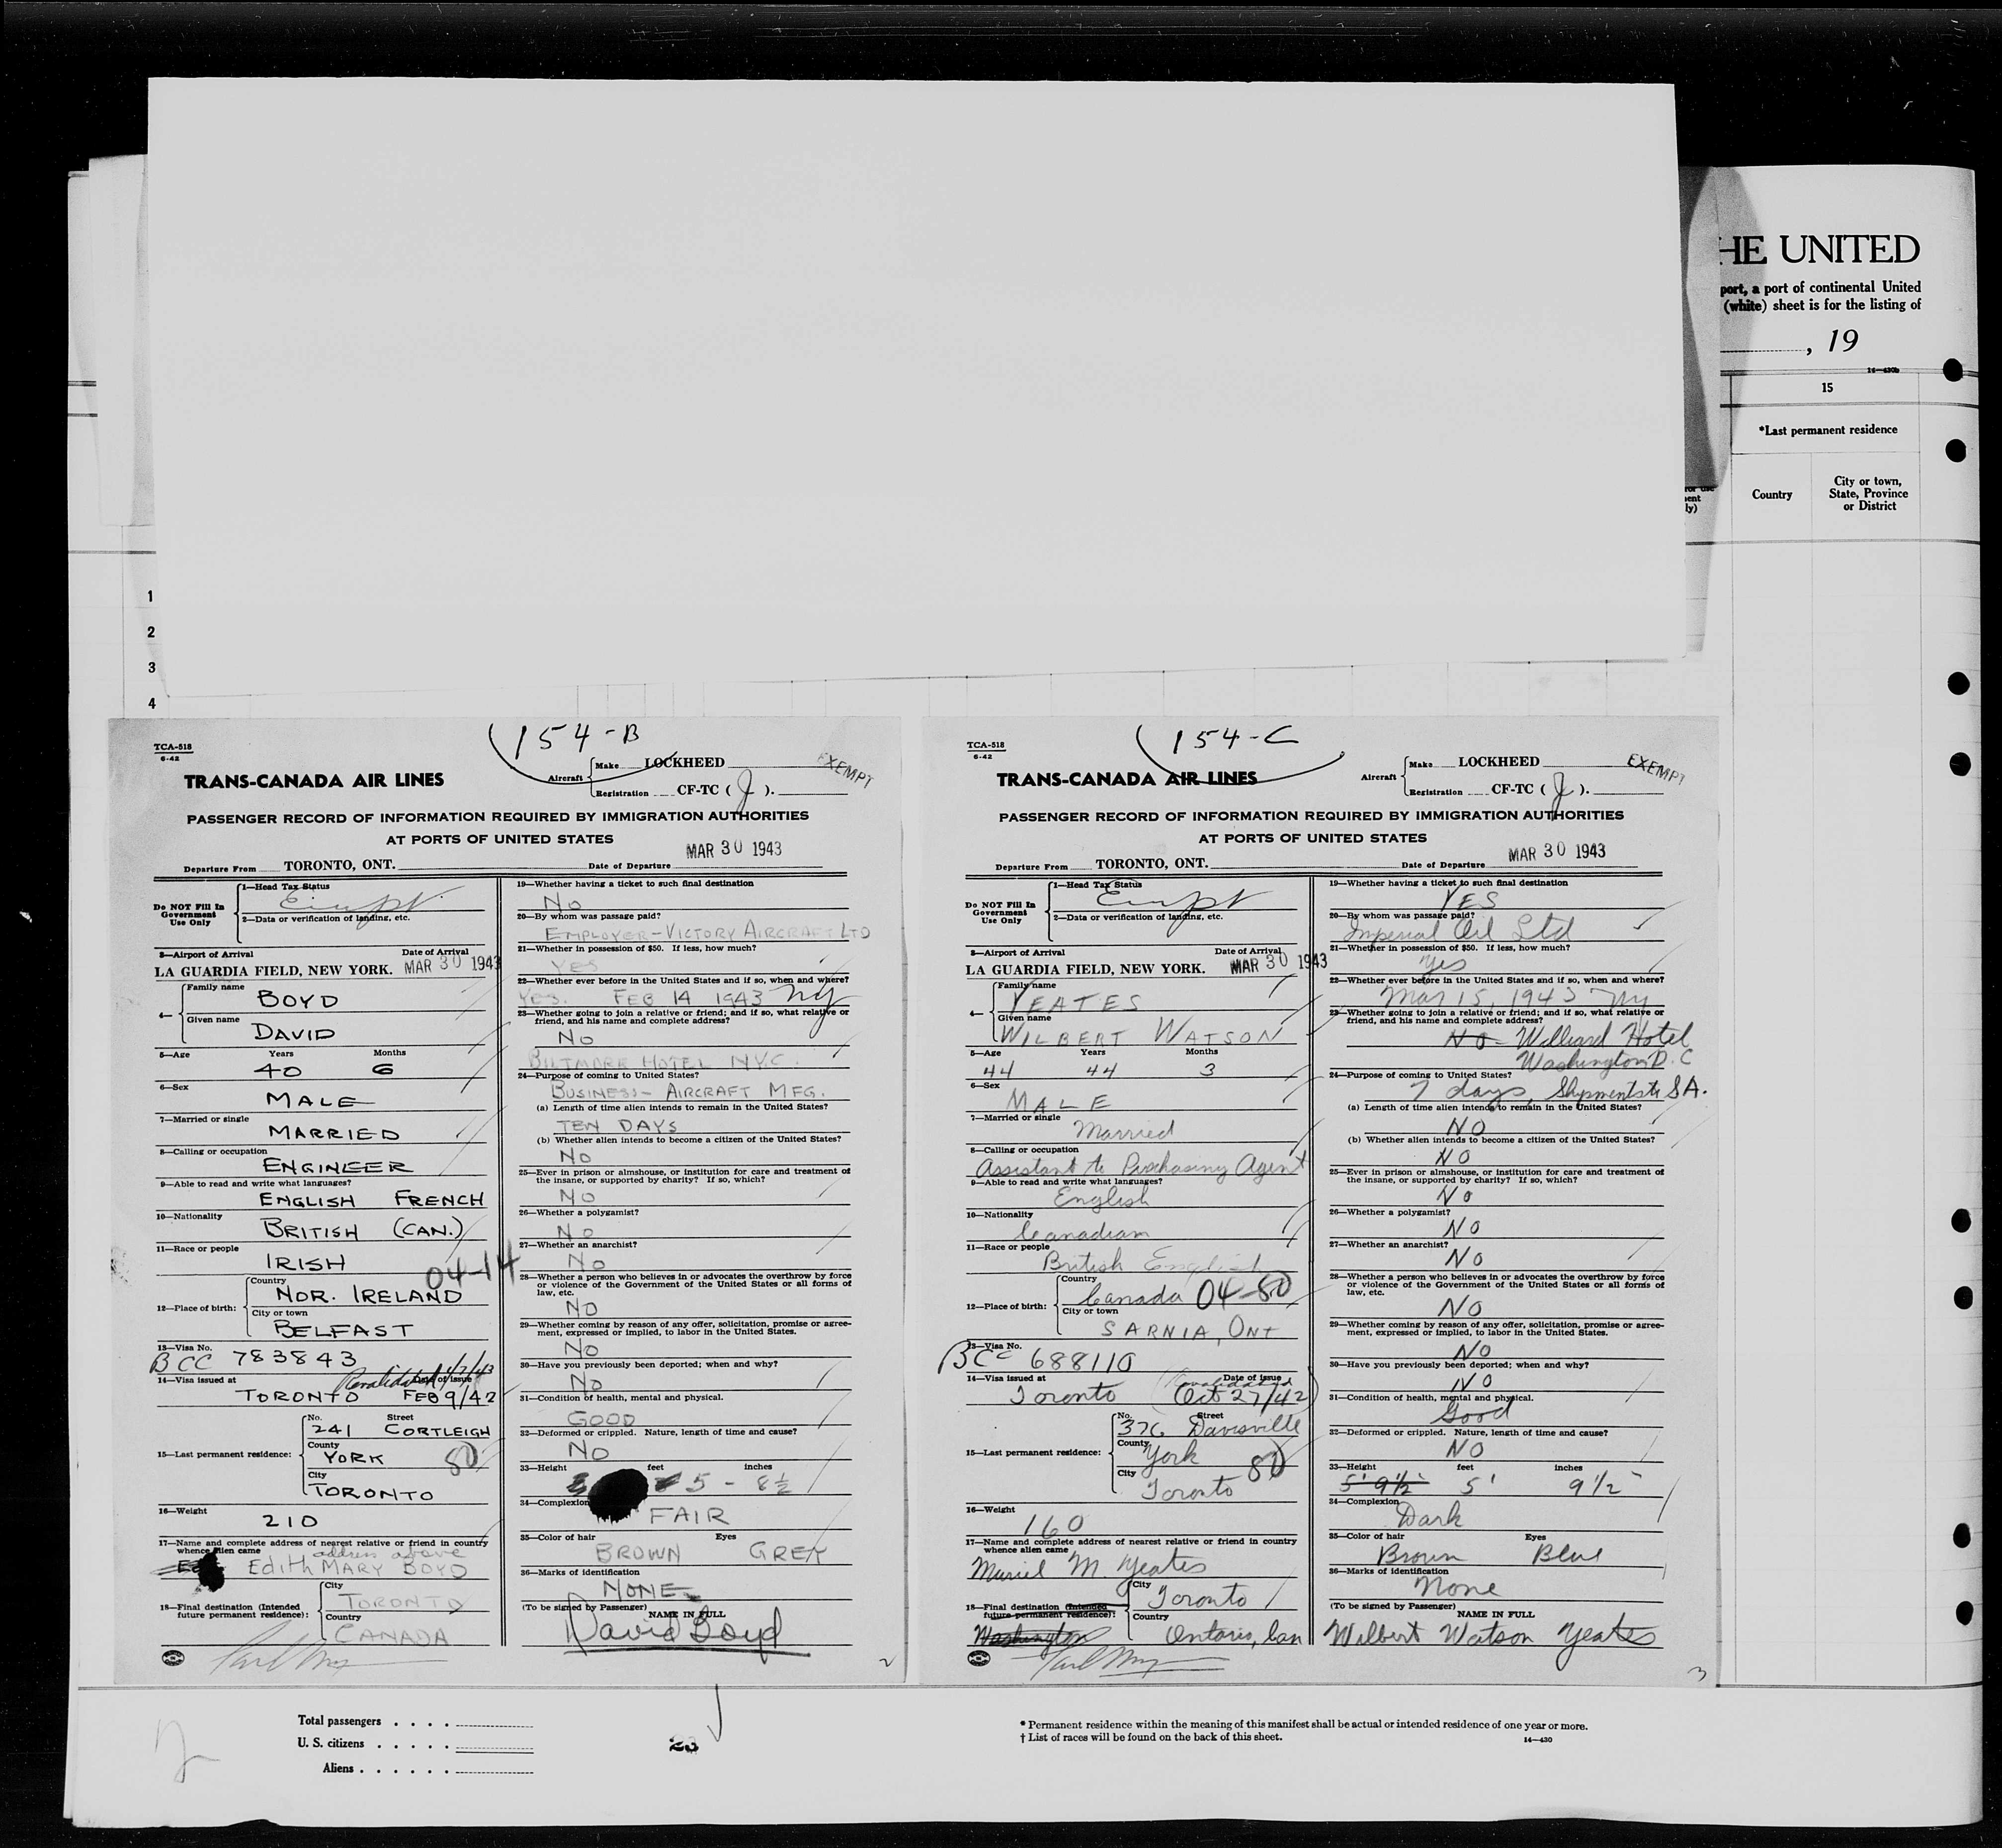 HE UNITED
port, a port of continental United
(white) sheet is for the listing of
, 19
14—430b
15
*Last permanent residence
Country
City or town,
State, Province
or District
1
2
3
4
154-B
TCA-518
6-42
TRANS-CANADA AIR LINES
Aircraft
Make LOCKHEED
Registration CF-TC ( J ).
EXEMPT
PASSENGER RECORD OF INFORMATION REQUIRED BY IMMIGRATION AUTHORITIES
AT PORTS OF UNITED STATES
Departure From TORONTO, ONT. Date of Departure MAR 30 1943
Do NOT Fill In
Government
Use Only
1—Head Tax Status
Exempt
2—Data or verification of landing, etc.
3—Airport of Arrival Date of Arrival
LA GUARDIA FIELD, NEW YORK. MAR 30 1943
4—
Family name
BOYD
Given name
DAVID
5—Age Years Months
40 6
6—Sex
MALE
7—Married or single
MARRIED
8—Calling or occupation
ENGINEER
9—Able to read and write what languages?
ENGLISH FRENCH
10—Nationality
BRITISH (CAN.)
11—Race or people
IRISH
04-14
12—Place of birth:
Country
NOR. IRELAND
City or town
BELFAST
13—Visa No.
BCC 783843
Revalidated 1/2/43
14—Visa issued at Date of issue
TORONTO FEB 9/42
15—Last permanent residence:
No. Street
241 CORTLEIGH
County
YORK 80
City
TORONTO
16—Weight
210
17—Name and complete address of nearest relative or friend in country
whence alien came address above
Edith MARY BOYD
18—Final destination (Intended
future permanent residence):
City
TORONTO
Country
CANADA
19—Whether having a ticket to such final destination
NO
20—By whom was passage paid?
EMPLOYER-VICTORY AIRCRAFT LTD
21—Whether in possession of $50. If less, how much?
YES
22—Whether ever before in the United States and if so, when and where?
YES. FEB 14 1943 NY
23—Whether going to join a relative or friend; and if so, what relative or
friend, and his name and complete address?
NO
BILTMORE HOTEL N.Y.C.
24—Purpose of coming to United States?
BUSINESS- AIRCRAFT MFG.
(a) Length of time alien intends to remain in the United States?
TEN DAYS
(b) Whether alien intends to become a citizen of the United States?
NO
25—Ever in prison or almshouse, or institution for care and treatment of
the insane, or supported by charity? If so, which?
NO
26—Whether a polygamist?
NO
27—Whether an anarchist?
NO
28—Whether a person who believes in or advocates the overthrow by force
or violence of the Government of the United States or all forms of
law, etc.
NO
29—Whether coming by reason of any offer, solicitation, promise or agree-
ment, expressed or implied, to labor in the United States.
NO
30—Have you previously been deported; when and why?
NO
31—Condition of health, mental and physical.
GOOD
32—Deformed or crippled. Nature, length of time and cause?
NO
33—Height feet inches
5 - 8½
34—Complexion
FAIR
35—Color of hair Eyes
BROWN GREY
36—Marks of identification
NONE
(To be signed by Passenger) NAME IN FULL
David Boyd
2
154-C
TCA-518
6-42
TRANS-CANADA AIR LINES
Aircraft
Make LOCKHEED
Registration CF-TC ( J ).
EXEMPT
PASSENGER RECORD OF INFORMATION REQUIRED BY IMMIGRATION AUTHORITIES
AT PORTS OF UNITED STATES
Departure From TORONTO, ONT. Date of Departure MAR 30 1943
Do NOT Fill In
Government
Use Only
1—Head Tax Status
Exempt
2—Data or verification of landing, etc.
3—Airport of Arrival Date of Arrival
LA GUARDIA FIELD, NEW YORK. MAR 30 1943
4—
Family name
YEATES
Given name
WILBERT WATSON
5—Age Years Months
44 44 3
6—Sex
MALE
7—Married or single
Married
8—Calling or occupation
Assistant to Purchasing Agent
9—Able to read and write what languages?
English
10—Nationality
Canadian
11—Race or people
British English
12—Place of birth:
Country
Canada 04-80
City or town
SARNIA, ONT
13—Visa No.
BCC 688110
14—Visa issued at Date of issue
Revalidated
Toronto (Oct 27/42)
15—Last permanent residence:
No. Street
376 Davisville
County
York 80
City
Toronto
16—Weight
160
17—Name and complete address of nearest relative or friend in country
whence alien came
Muriel M. Yeates
18—Final destination (Intended
future permanent residence):
Washington
City
Toronto
Country
Ontario, Can
19—Whether having a ticket to such final destination
YES
20—By whom was passage paid?
Imperial Oil Ltd
21—Whether in possession of $50. If less, how much?
Yes
22—Whether ever before in the United States and if so, when and where?
Mar 15, 1943 NY
23—Whether going to join a relative or friend; and if so, what relative or
friend, and his name and complete address?
No - Williard Hotel
Washington D.C
24—Purpose of coming to United States?
7 days, Shipments to SA.
(a) Length of time alien intends to remain in the United States?
NO
(b) Whether alien intends to become a citizen of the United States?
NO
25—Ever in prison or almshouse, or institution for care and treatment of
the insane, or supported by charity? If so, which?
NO
26—Whether a polygamist?
NO
27—Whether an anarchist?
NO
28—Whether a person who believes in or advocates the overthrow by force
or violence of the Government of the United States or all forms of
law, etc.
NO
29—Whether coming by reason of any offer, solicitation, promise or agree-
ment, expressed or implied, to labor in the United States.
NO
30—Have you previously been deported; when and why?
NO
31—Condition of health, mental and physical.
Good
32—Deformed or crippled. Nature, length of time and cause?
NO
33—Height feet inches
5' 9½" 5' 9½"
34—Complexion
Dark
35—Color of hair Eyes
Brown Blue
36—Marks of identification
None
(To be signed by Passenger) NAME IN FULL
Wilbert Watson Yeates
3
Total passengers . . . .
U. S. citizens . . . . .
Aliens . . . . . .
* Permanent residence within the meaning of this manifest shall be actual or intended residence of one year or more.
† List of races will be found on the back of this sheet.
14—430